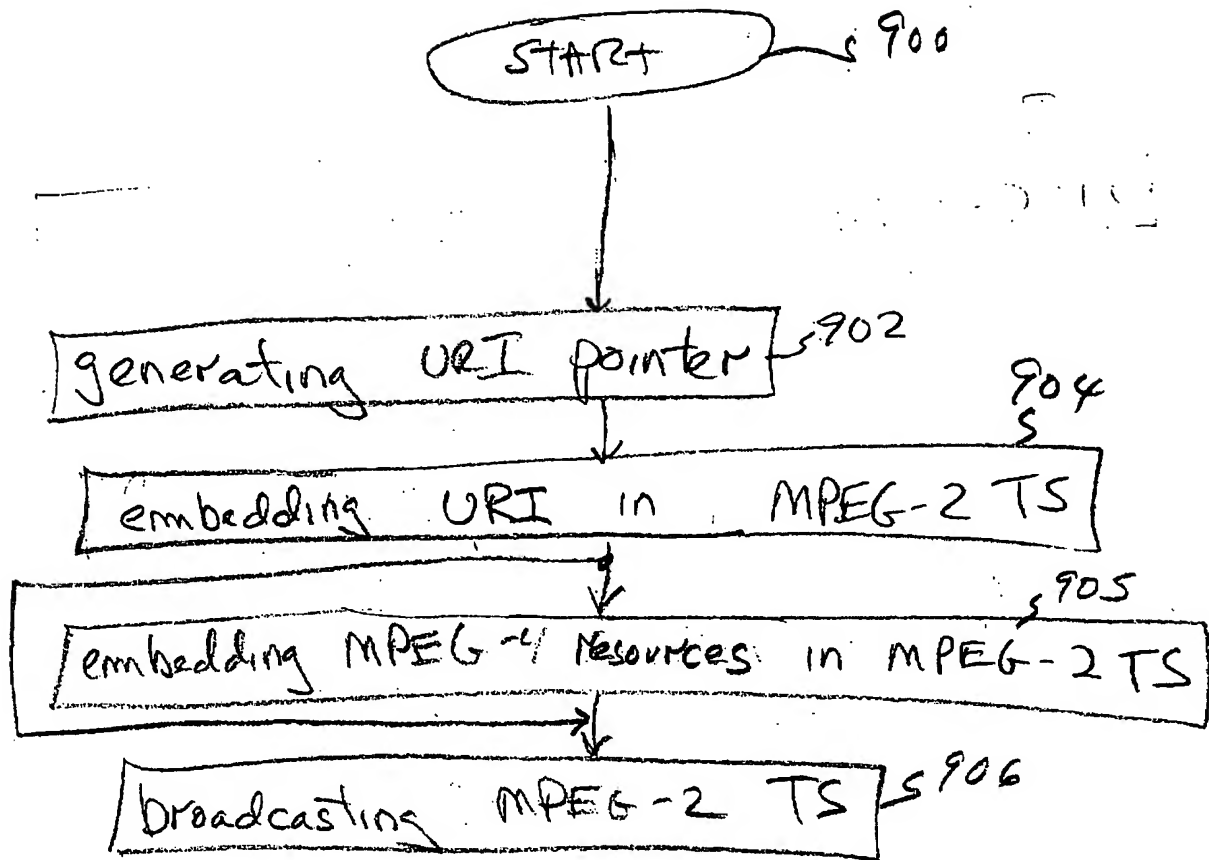 START 900
generating URI pointer 902
904
embedding URI in MPEG-2 TS
905
embedding MPEG-4 resources in MPEG-2 TS
broadcasting MPEG-2 TS 906